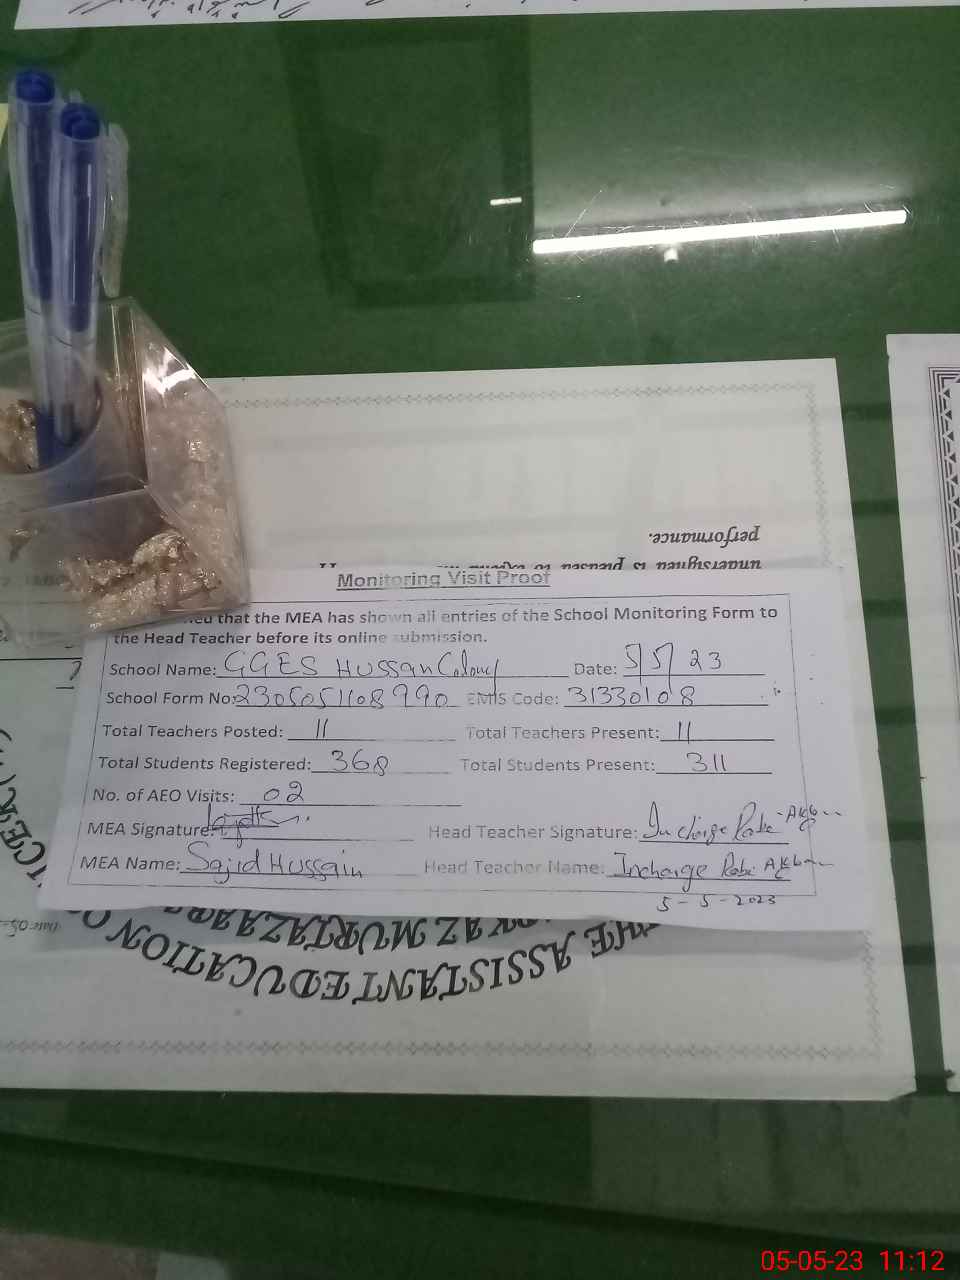 performance.
undersigned is pleased to
Monitoring Visit Proof
that the MEA has shown all entries of the School Monitoring Form to
the Head Teacher before its online submission.
School Name: GGES Hussan Colony Date: 5/5/23
School Form No: 2305051108990 EMIS Code: 31330108
Total Teachers Posted: 11 Total Teachers Present: 11
Total Students Registered: 368 Total Students Present: 311
No. of AEO Visits: 02
MEA Signature: Head Teacher Signature: Incharge Rabia Akbar
MEA Name: Sajid Hussain Head Teacher Name: Incharge Rabi Akbar
5-5-2023
MURTAZA
THE ASSISTANT EDUCATION
05-05-23 11:12